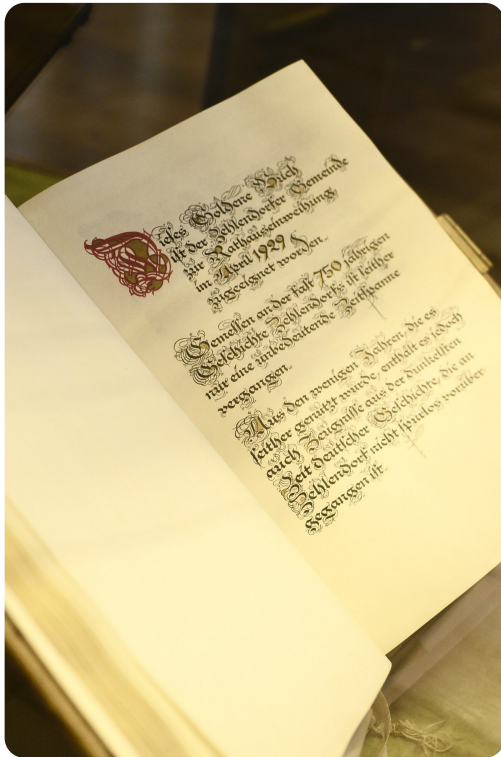 Dieses Goldene Buch
ist der Zehlendorfer Gemeinde
zur Rathauseinweihung
im April 1929
zugeeignet worden.
Gemessen an der fast 750 jährigen
Geschichte Zehlendorfs ist seither
nur eine unbedeutende Zeitspanne
vergangen.
Aus den wenigen Jahren, die es
seither genützt wurde, enthält es jedoch
auch Zeugnisse aus der dunkelsten
Zeit deutscher Geschichte, die an
Zehlendorf nicht spurlos vorüber
gegangen ist.